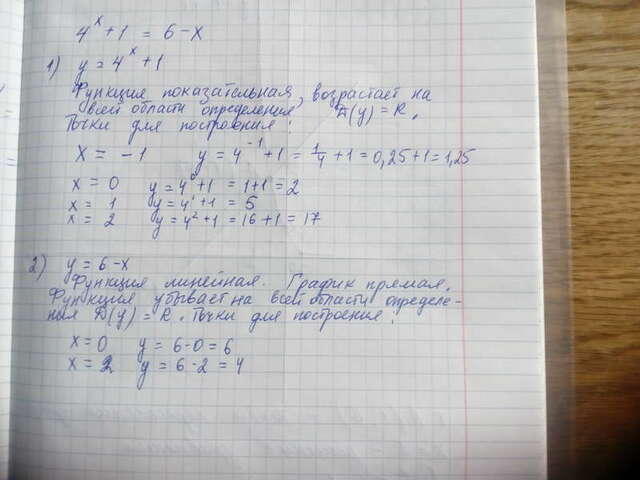 4^x + 1 = 6 - x
1) y = 4^x + 1
Функция показательная, возрастает на
всей области определения, D(y) = R.
Точки для построения:
x = -1 y = 4^-1 + 1 = 1/4 + 1 = 0,25 + 1 = 1,25
x = 0 y = 4^0 + 1 = 1 + 1 = 2
x = 1 y = 4^1 + 1 = 5
x = 2 y = 4^2 + 1 = 16 + 1 = 17
2) y = 6 - x
Функция линейная. График прямая.
Функция убывает на всей области определе-
ния D(y) = R. Точки для построения:
x = 0 y = 6 - 0 = 6
x = 2 y = 6 - 2 = 4